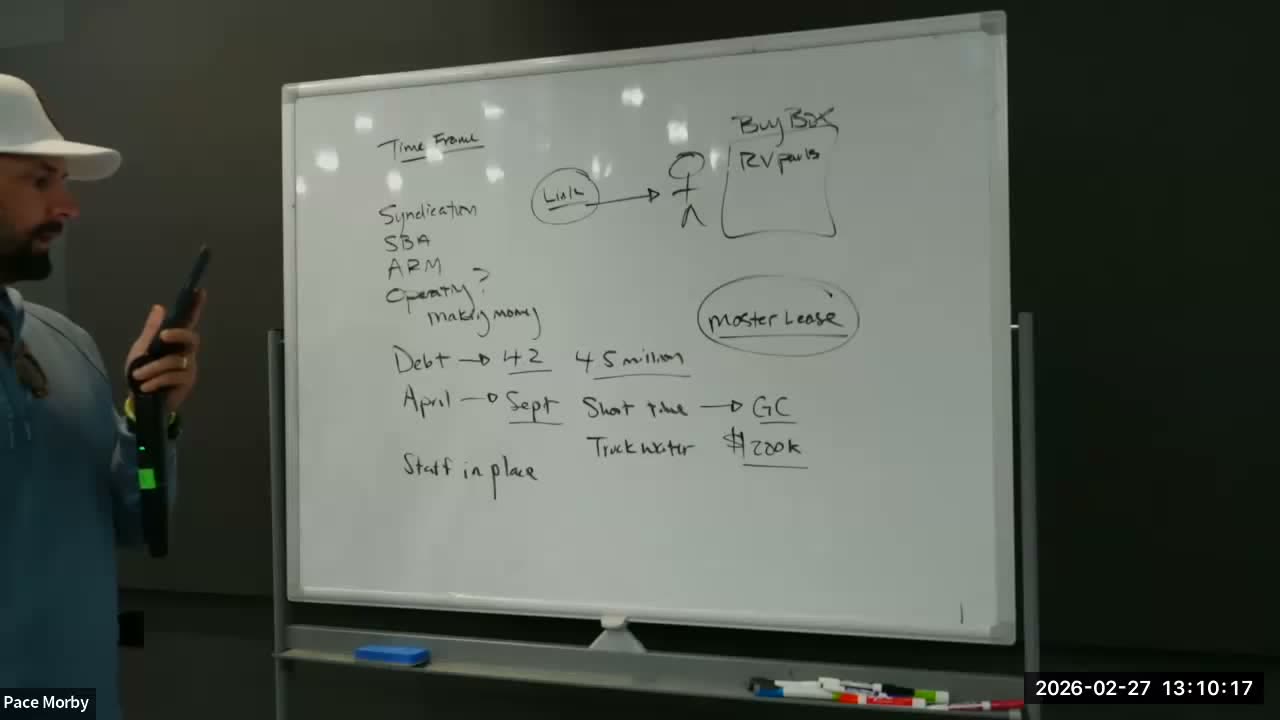 Time Frame
Buy Box
RV parks
Link
Syndication
SBA
ARM
Operating?
making money
Master Lease
Debt → 42 45 million
April → Sept Short time → GC
Truck water $200k
Staff in place
Pace Morby
2026-02-27 13:10:17